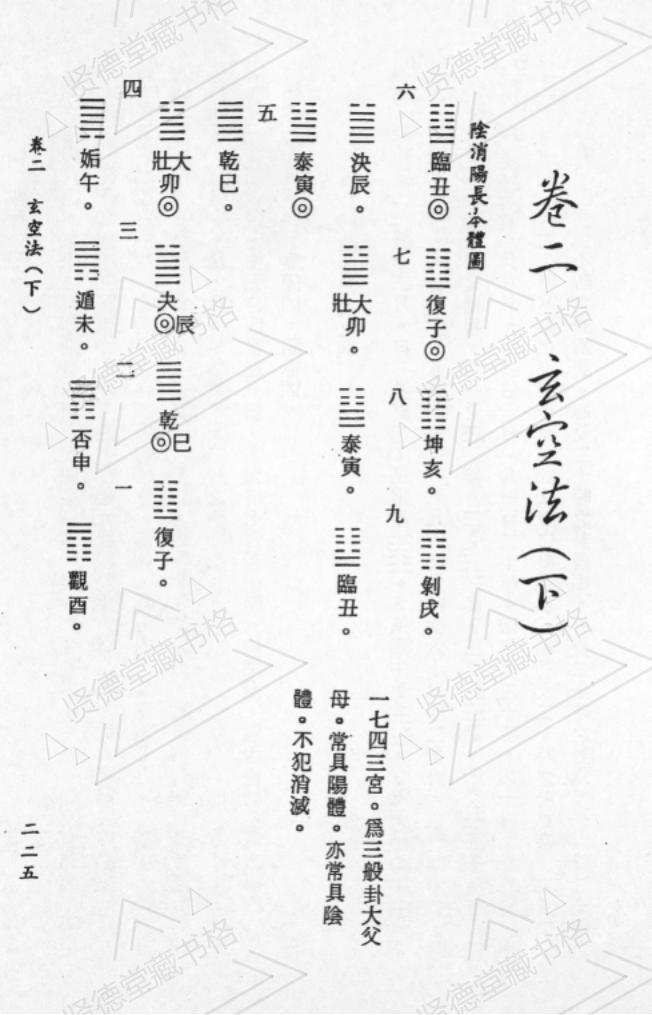 卷二 玄空法（下）
陰消陽長本體圖
六
䷒臨丑◎
七
䷗復子◎
八
䷁坤亥。
九
䷖剝戌。
䷪決辰。
䷡大壯卯。
䷊泰寅。
䷒臨丑。
一七四三宮。爲三般卦大父
母。常具陽體。亦常具陰
體。不犯消滅。
䷊泰寅◎
五
䷀乾巳。
䷡大壯卯◎
䷪夬辰◎
䷀乾巳◎
䷗復子。
四
三
二
一
䷫姤午。
䷠遁未。
䷋否申。
䷓觀酉。
卷二 玄空法（下）
二二五
贤德堂藏书格